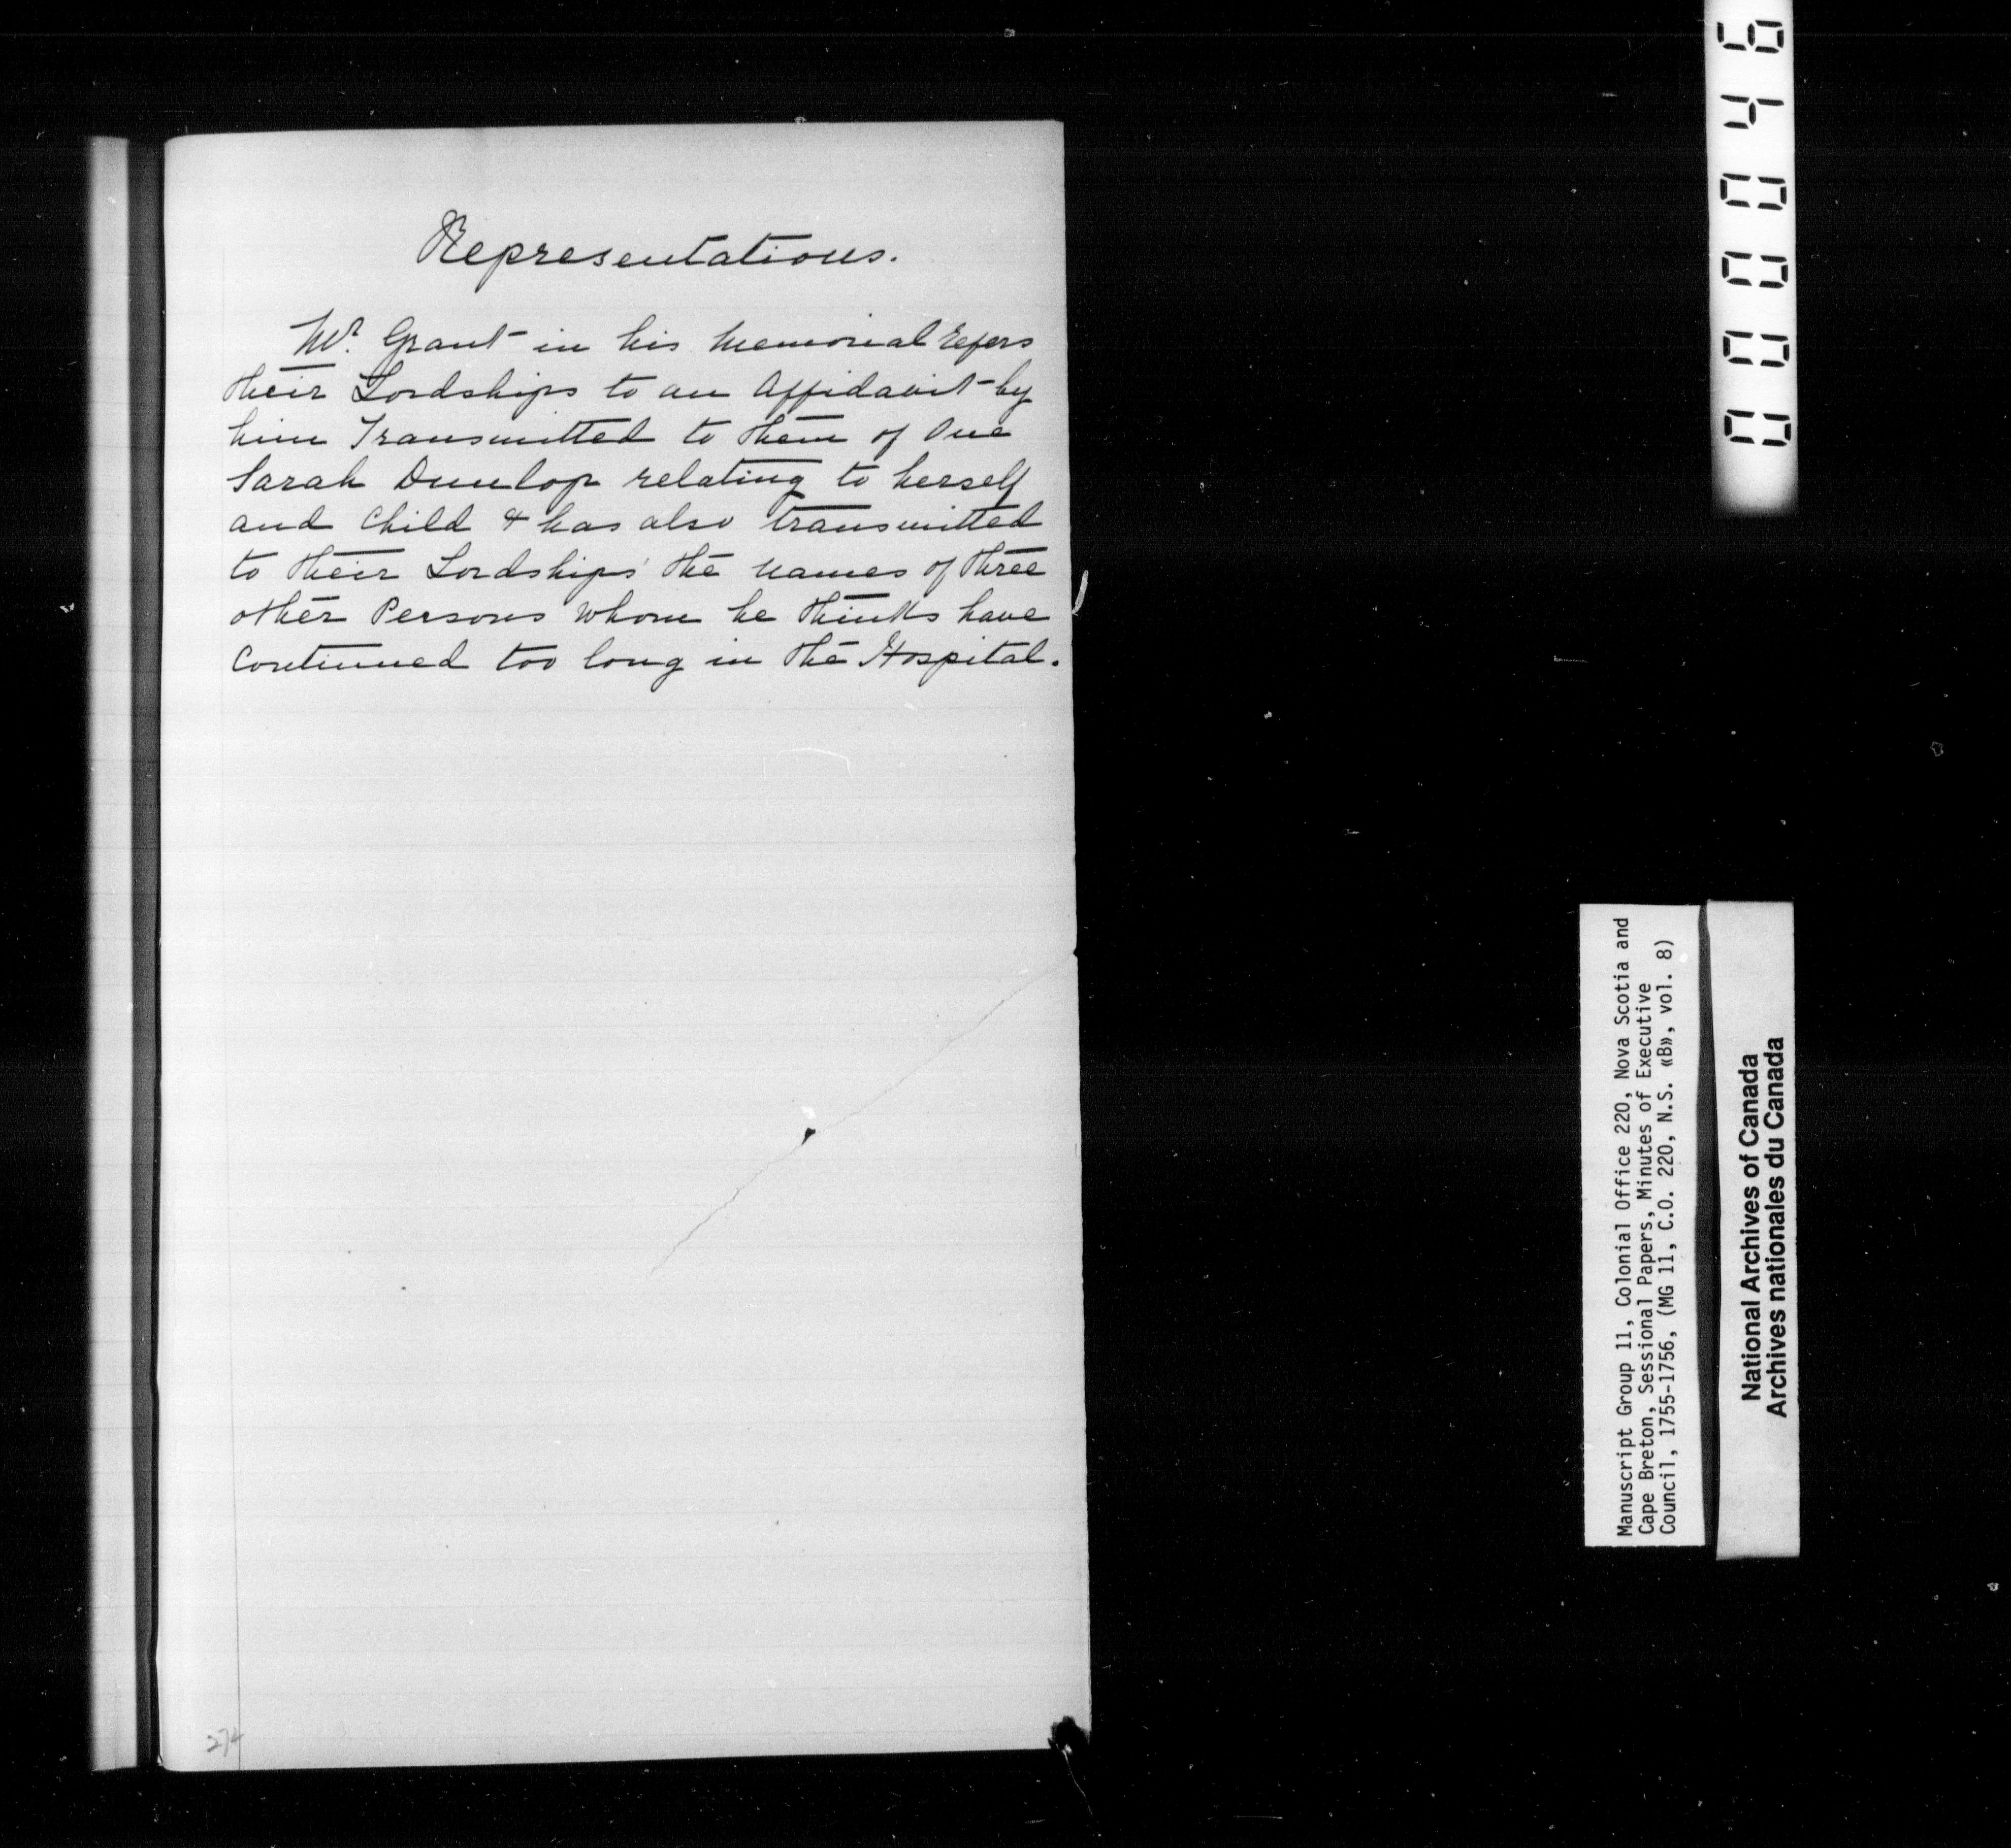 Representations.
Mr. Grant in his Memorial refers
their Lordships to an Affidavit by
him Transmitted to them of One
Sarah Dunlop relating to herself
and Child & has also transmitted
to their Lordships the names of three
other Persons whom he thinks have
Continued too long in the Hospital.
274
000046
Manuscript Group 11, Colonial Office 220, Nova Scotia and
Cape Breton, Sessional Papers, Minutes of Executive
Council, 1755-1756, (MG 11, C.O. 220, N.S. «B», vol. 8)
National Archives of Canada
Archives nationales du Canada